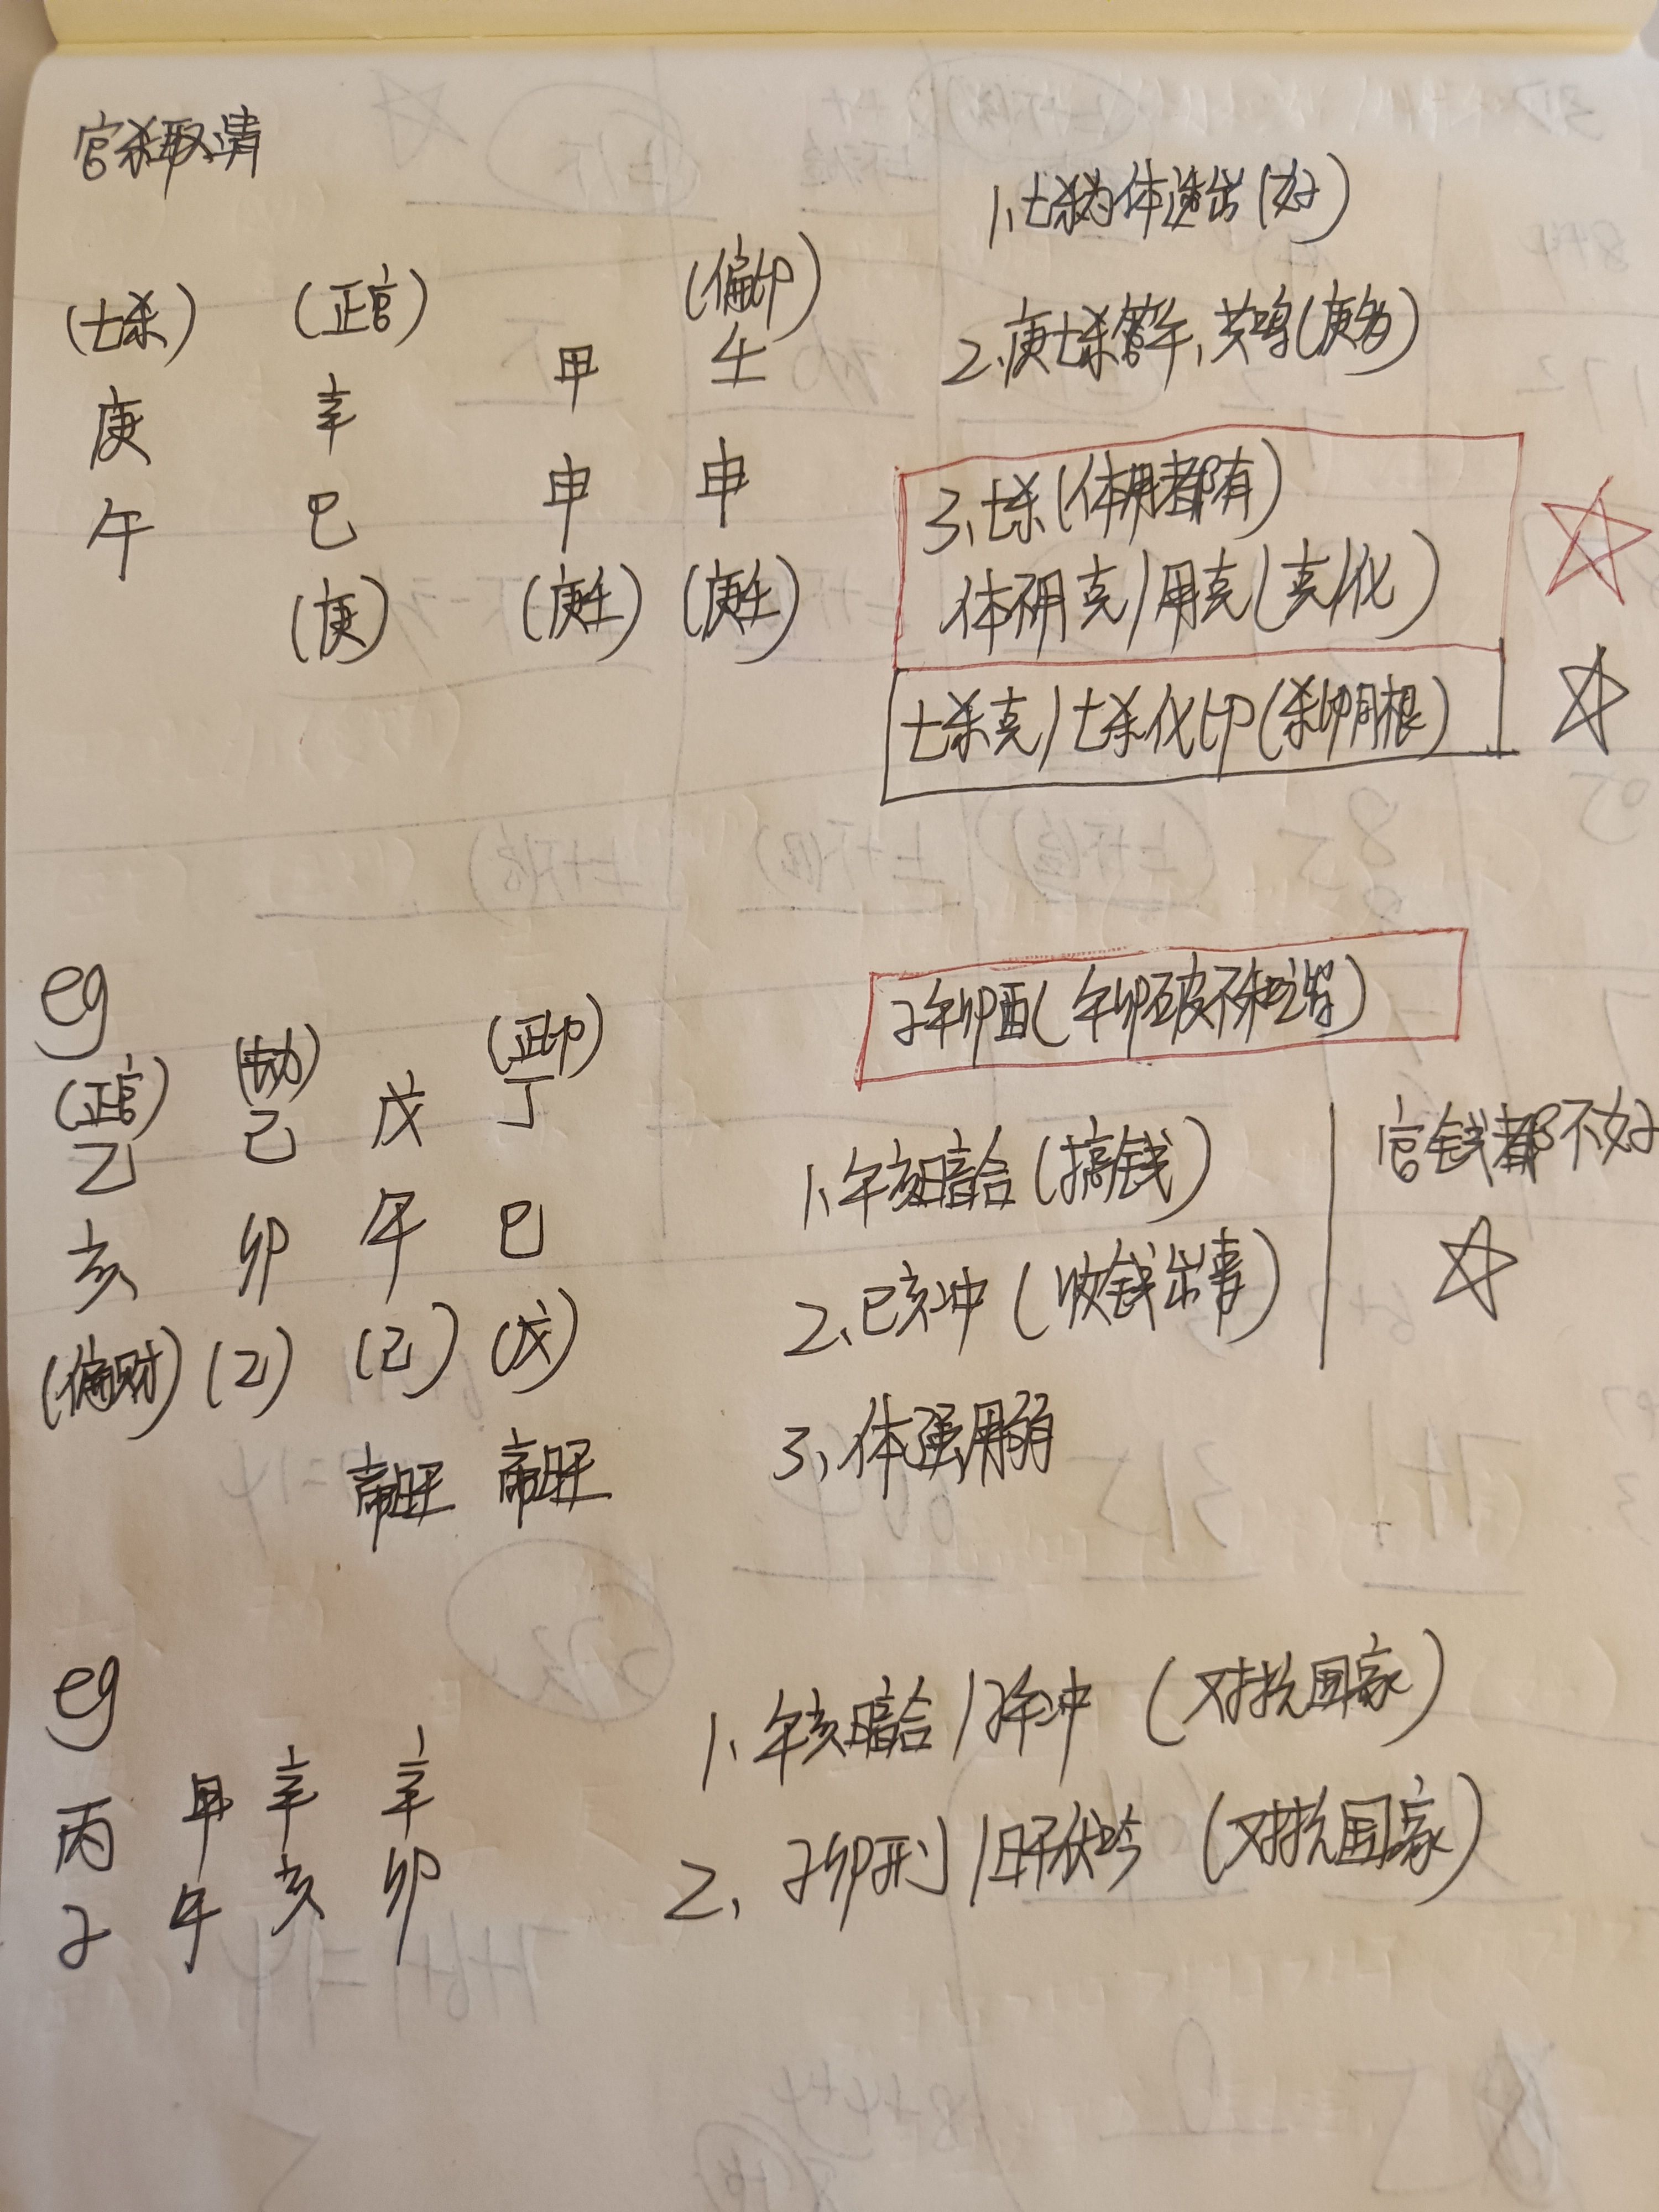 官杀取清
1、七杀为体透出(好)
(七杀) (正官) (偏印)
庚 辛 甲 壬
午 巳 申 申
(庚) (庚壬) (庚壬)
2、庚七杀管午,共鸣(庚为)
3、七杀(体用都有)
体不用克/用克(克/化)
七杀克/七杀化印(杀印同根)
eg
(正官) (劫) (正印)
乙 己 戊 丁
亥 卯 午 巳
(偏财) (乙) (己) (戊)
帝旺 帝旺
子午卯酉(午卯破不和谐)
1、午亥暗合(搞钱)
2、巳亥冲(收钱出事)
官钱都不好
3、体强用弱
eg
丙 甲 辛 辛
子 午 亥 卯
1、午亥暗合/子午冲(对抗国家)
2、子卯刑/日干伏吟(对抗国家)